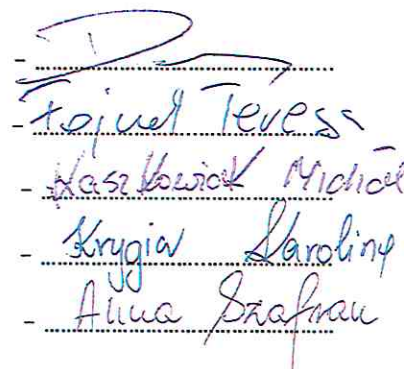 -
- Fojud Teresa
- Kaszkowiak Michał
- Krygier Karolina
- Anna Szafran